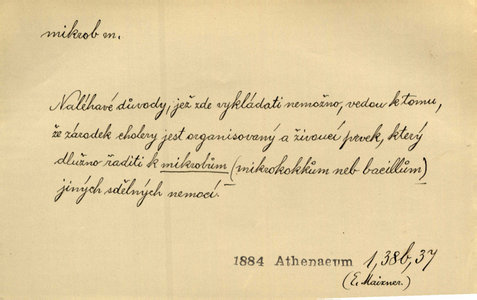 mikrob m.
Naléhavé důvody, jež zde vykládati nemožno, vedou k tomu,
že zárodek cholery jest organisovaný a živoucí prvek, který
dlužno řaditi k mikrobům (mikrokokkům neb bacillům)
jiných sdělných nemocí.
1884 Athenaeum 1, 38b, 37
(E. Maixner.)